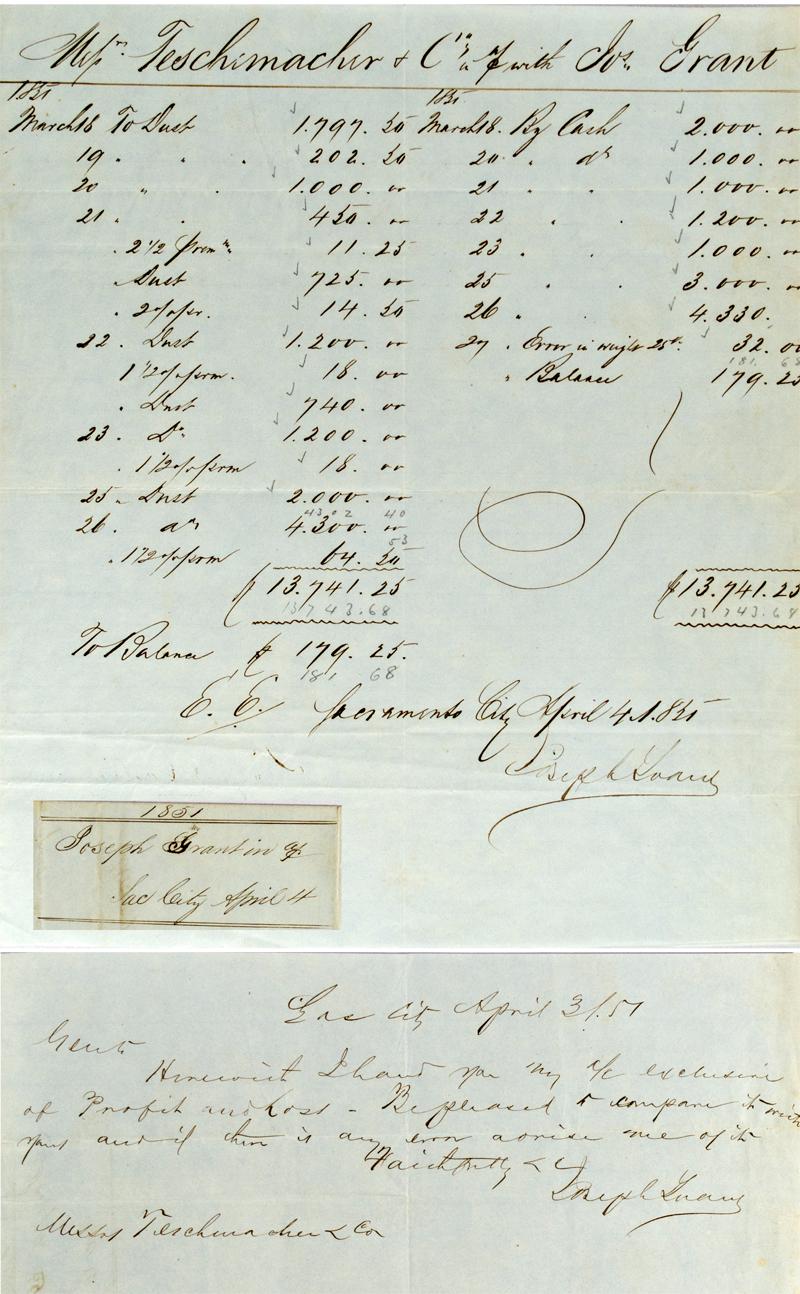 Messrs Teschemacher & Co in a/c with Jos. Grant
1851 1851
March 18 To Dust 1.797. 50 March 18. By Cash 2.000. oo
19 " " " 202. 50 20 " do 1.000. oo
20 " " 1.000. oo 21 " " 1.000. oo
21 " " 450. oo 22 " " 1.200. oo
" 2 1/2 prem 11. 25 23 " " 1.000. oo
" Dust 725. oo 25 " " 3.000. oo
" 2 o/o pr. 14. 50 26 " 4.330.
22. Dust 1.200. oo 27 " Error in weight 25th 32. oo
181. 68
1 1/2 o/o prm. 18. oo " Balance 179. 25
" Dust 740. oo
23. Do 1.200. oo
" 1 1/2 o/o prm 18. oo
25 " Dust 2.000. oo
4302 40
26. do 4.300. oo
53
" 1 1/2 o/o prm 64. 50
$ 13.741.25 $ 13.741.25
13743.68 13.743.68
To Balance $ 179. 25.
181 68
E. E. Sacramento City April 4. 1851
Joseph Grant
1851
Joseph Grant in a/c
Sac City April 4
Sac City April 3/51
Gents
Herewith I hand you my a/c exclusive
of Profit and Loss - Be pleased to compare it with
yours and if there is any error advise me of it
Faithfully &c
Joseph Grant
Messrs Teschemacher & Co